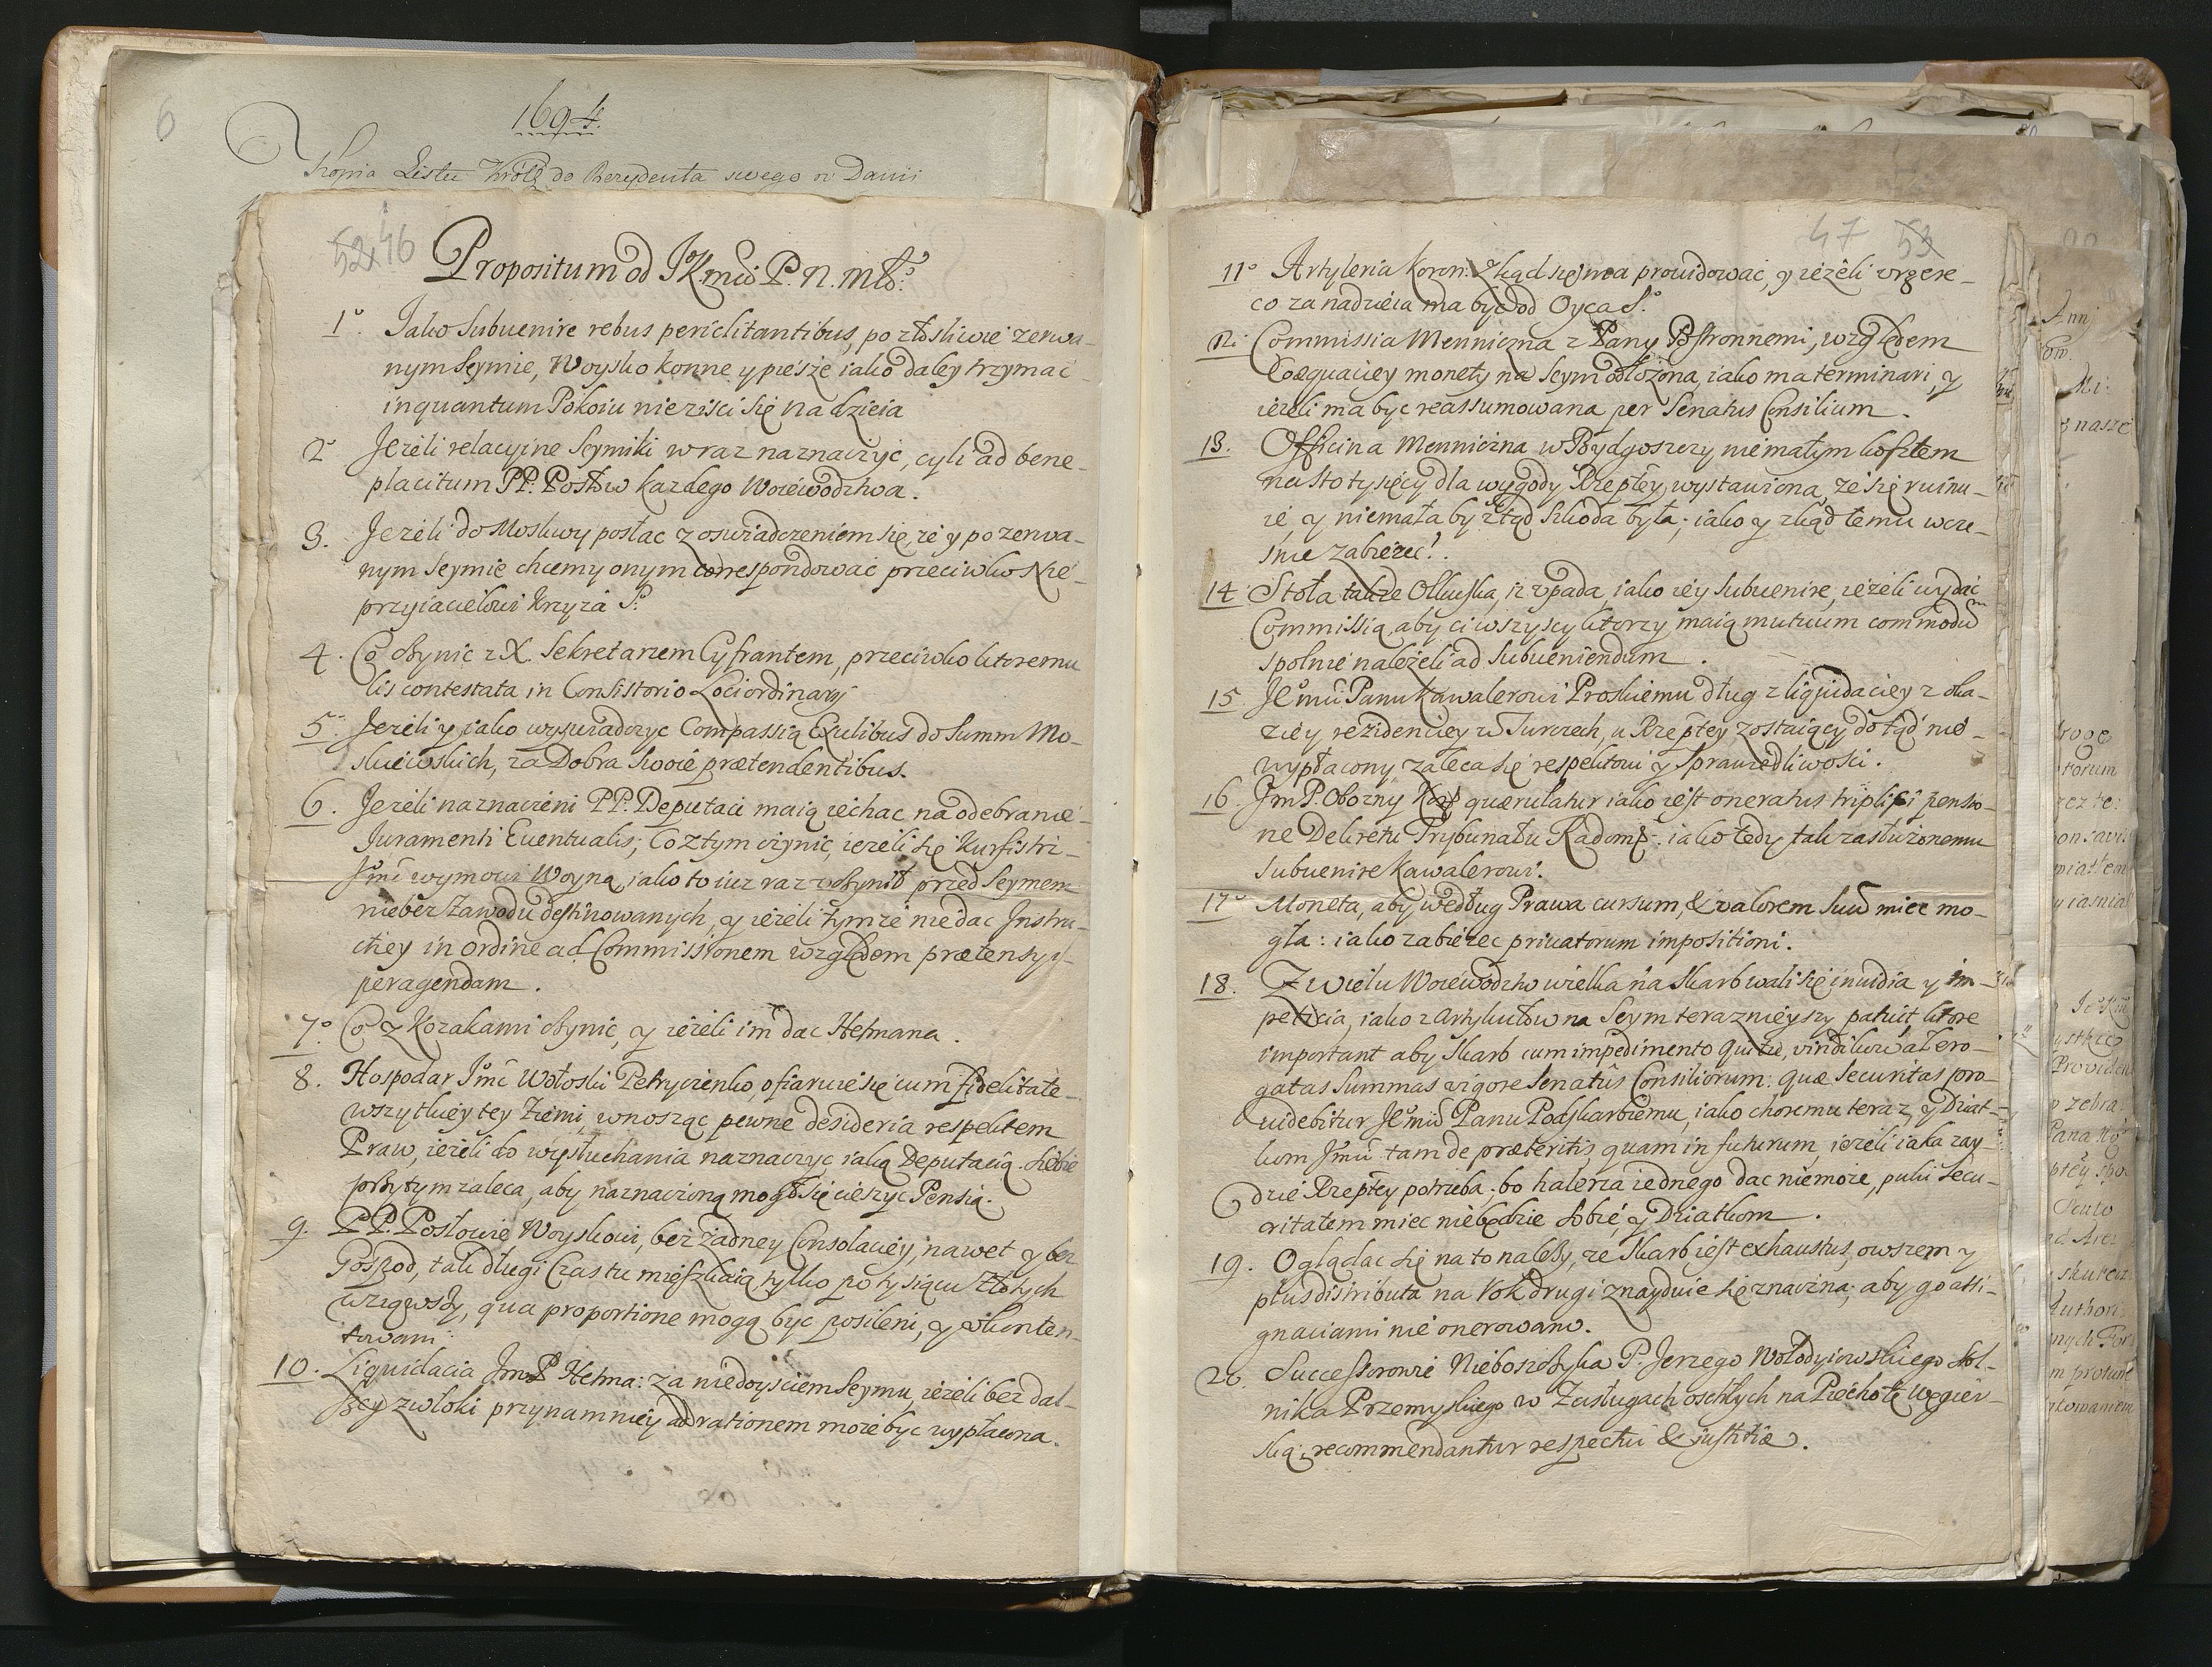 6
1694.
Kopia Listu Króla do Rezydenta swego w Danii
52 46
Propositum od JKmći P. N. Mło:
1º. Jako Subuenire rebus periclitantibus, po złosliwie zerwa-
nym Seymie, Woysko konne y piesze iako daley trzymac
inquantum Pokoiu nieziści się nadzieia
2º Jezeli relacyine Seymiki wraz naznaczyć, cyli ad bene-
placitum PP. Posłow kazdego Woiewodztwa.
3. Jezeli do Moskwy posłac z oswiadczeniem się, ze y po zerwa-
nym Seymie chcemy onym correspondować przeciwko Nie-
przyiacielowi Krzyża S.
4. Co czynic z X. Sekretarzem Cyfrantem, przeciwko ktoremu
lis contestata in Consistorio Loci ordinarij
5º Jezeli y iako wyswiadczyc Compassią Exulibus do Summ Mo-
skiewskich, za Dobra swoie prætendentibus.
6. Jezeli naznaczeni PP. Deputaci maią iechac na odebranie
Juramenti Euentualis; Co z tym czynic, iezeli się Kurfistrz
Jmć wymowi Woyną, iako to iuz raz uczynił przed Seymem
nie bez Zawodu destinowanych, y iezeli tymze nie dac Instru-
ctiey in ordine ad Commissionem względem prætensyi
peragendam.
7º. Co z Kozakami czynic, y iezeli im dac Hetmana.
8. Hospodar Jmć Wołoski Petryczenko, ofiaruie się cum fidelitate
wszytkiey tey Ziemi, wnosząc pewne desideria respektem
Praw, iezeli do wysłuchania naznaczyc iaką Deputacią. siebie
przytym zaleca, aby naznaczoną mogł się cieszyc Pensią.
9. PP. Posłowie Woyskowi, bez zadney Consolaciey, nawet y bez
Gospod, tak długi Czas tu mieszkaią tylko po tysiącu Złotych
wziąwszy, qua proportione mogą byc posileni, y ukonten-
towani
10. Liquidacia JmP Hetma: za niedoysciem Seymu, iezeli bez dal-
szey zwłoki przynamniey ad rationem moze byc wypłacona.
47 53
11º Artyleria Koron: zkąd się ma prouidować, y iezeli vrgere-
co za nadzieia ma być od Oyca S.
12. Commissia Mennicżna z Pany Postronnemi, względem
Coæquaciey monety na Seym odłożona, iako ma terminari, y
iezeli ma byc reassumowana per Senatus Consilium.
13. Officina Mennicżna w Bydgoszczy niemałym kosztem
na sto tysięcy dla wygody Rzeptey, wystawiona, ze się ruinu-
ie, y niemała by ztąd szkoda była; iako y zkąd temu wcze-
śnie zabiezec?
14. Stoła takze Olkuska, iz vpada, iako iey Subuenire, iezeli wydac
Commissią, aby ci wszyscy ktorzy maią mutuum commodũ
spolnie należeli ad Subueniendum.
15 Jemći Panu Kawalerowi Proskiemu dług z liquidaciey z oka-
ziey rezidenciey w Turczech, u Rzeptey zostaiący do tąd nie-
wypłacony zaleca się respektowi y Sprawiedliwosci.
16. JmP. Obozny Kor quærulatur iako iest oneratus triplici pensio-
ne Dekretu Trybunału Radoms: iako tedy tak zasłużonemu
Subuenire Kawalerowi.
17º Moneta, aby według Prawa cursum, & valorem suũ miec mo-
gła: iako zabiezec priuatorum impositioni.
18. Z wielu Woiewodztw wielka na Skarb wali się inuidia y im-
peticia, iako z Artykułow na Seym teraznieyszy patuit, ktore
important aby Skarb cum impedimento Quitu, vindikował ero-
gatas Summas vigore Senatûs Consiliorum: quæ Securitas pro-
uidebitur Jemći Panu Podskarbiemu, iako choremu teraz, y Dziat-
kom Jmći tam de præteritis, quam in futurum, iezeli iaka zay-
dzie Rzeptey potrzeba; bo halerza iednego dac niemoze, puki Secu-
ritatem miec niebędzie sobie, y Dziatkom.
19. Oglądac się na to nalezy, ze Skarb iest exhaustus, owszem y
plus distributa na Rok drugi znayduie się znaczna; aby go assi-
gnaciami nie onerowano.
20. Successorowie Nieboszczyka P. Jerzego Wołodyiowskiego Stol-
nika Przemyskiego w Zasługach oschłych na Piechotę Węgier-
ską; recommendantur respectui & iustitiæ.